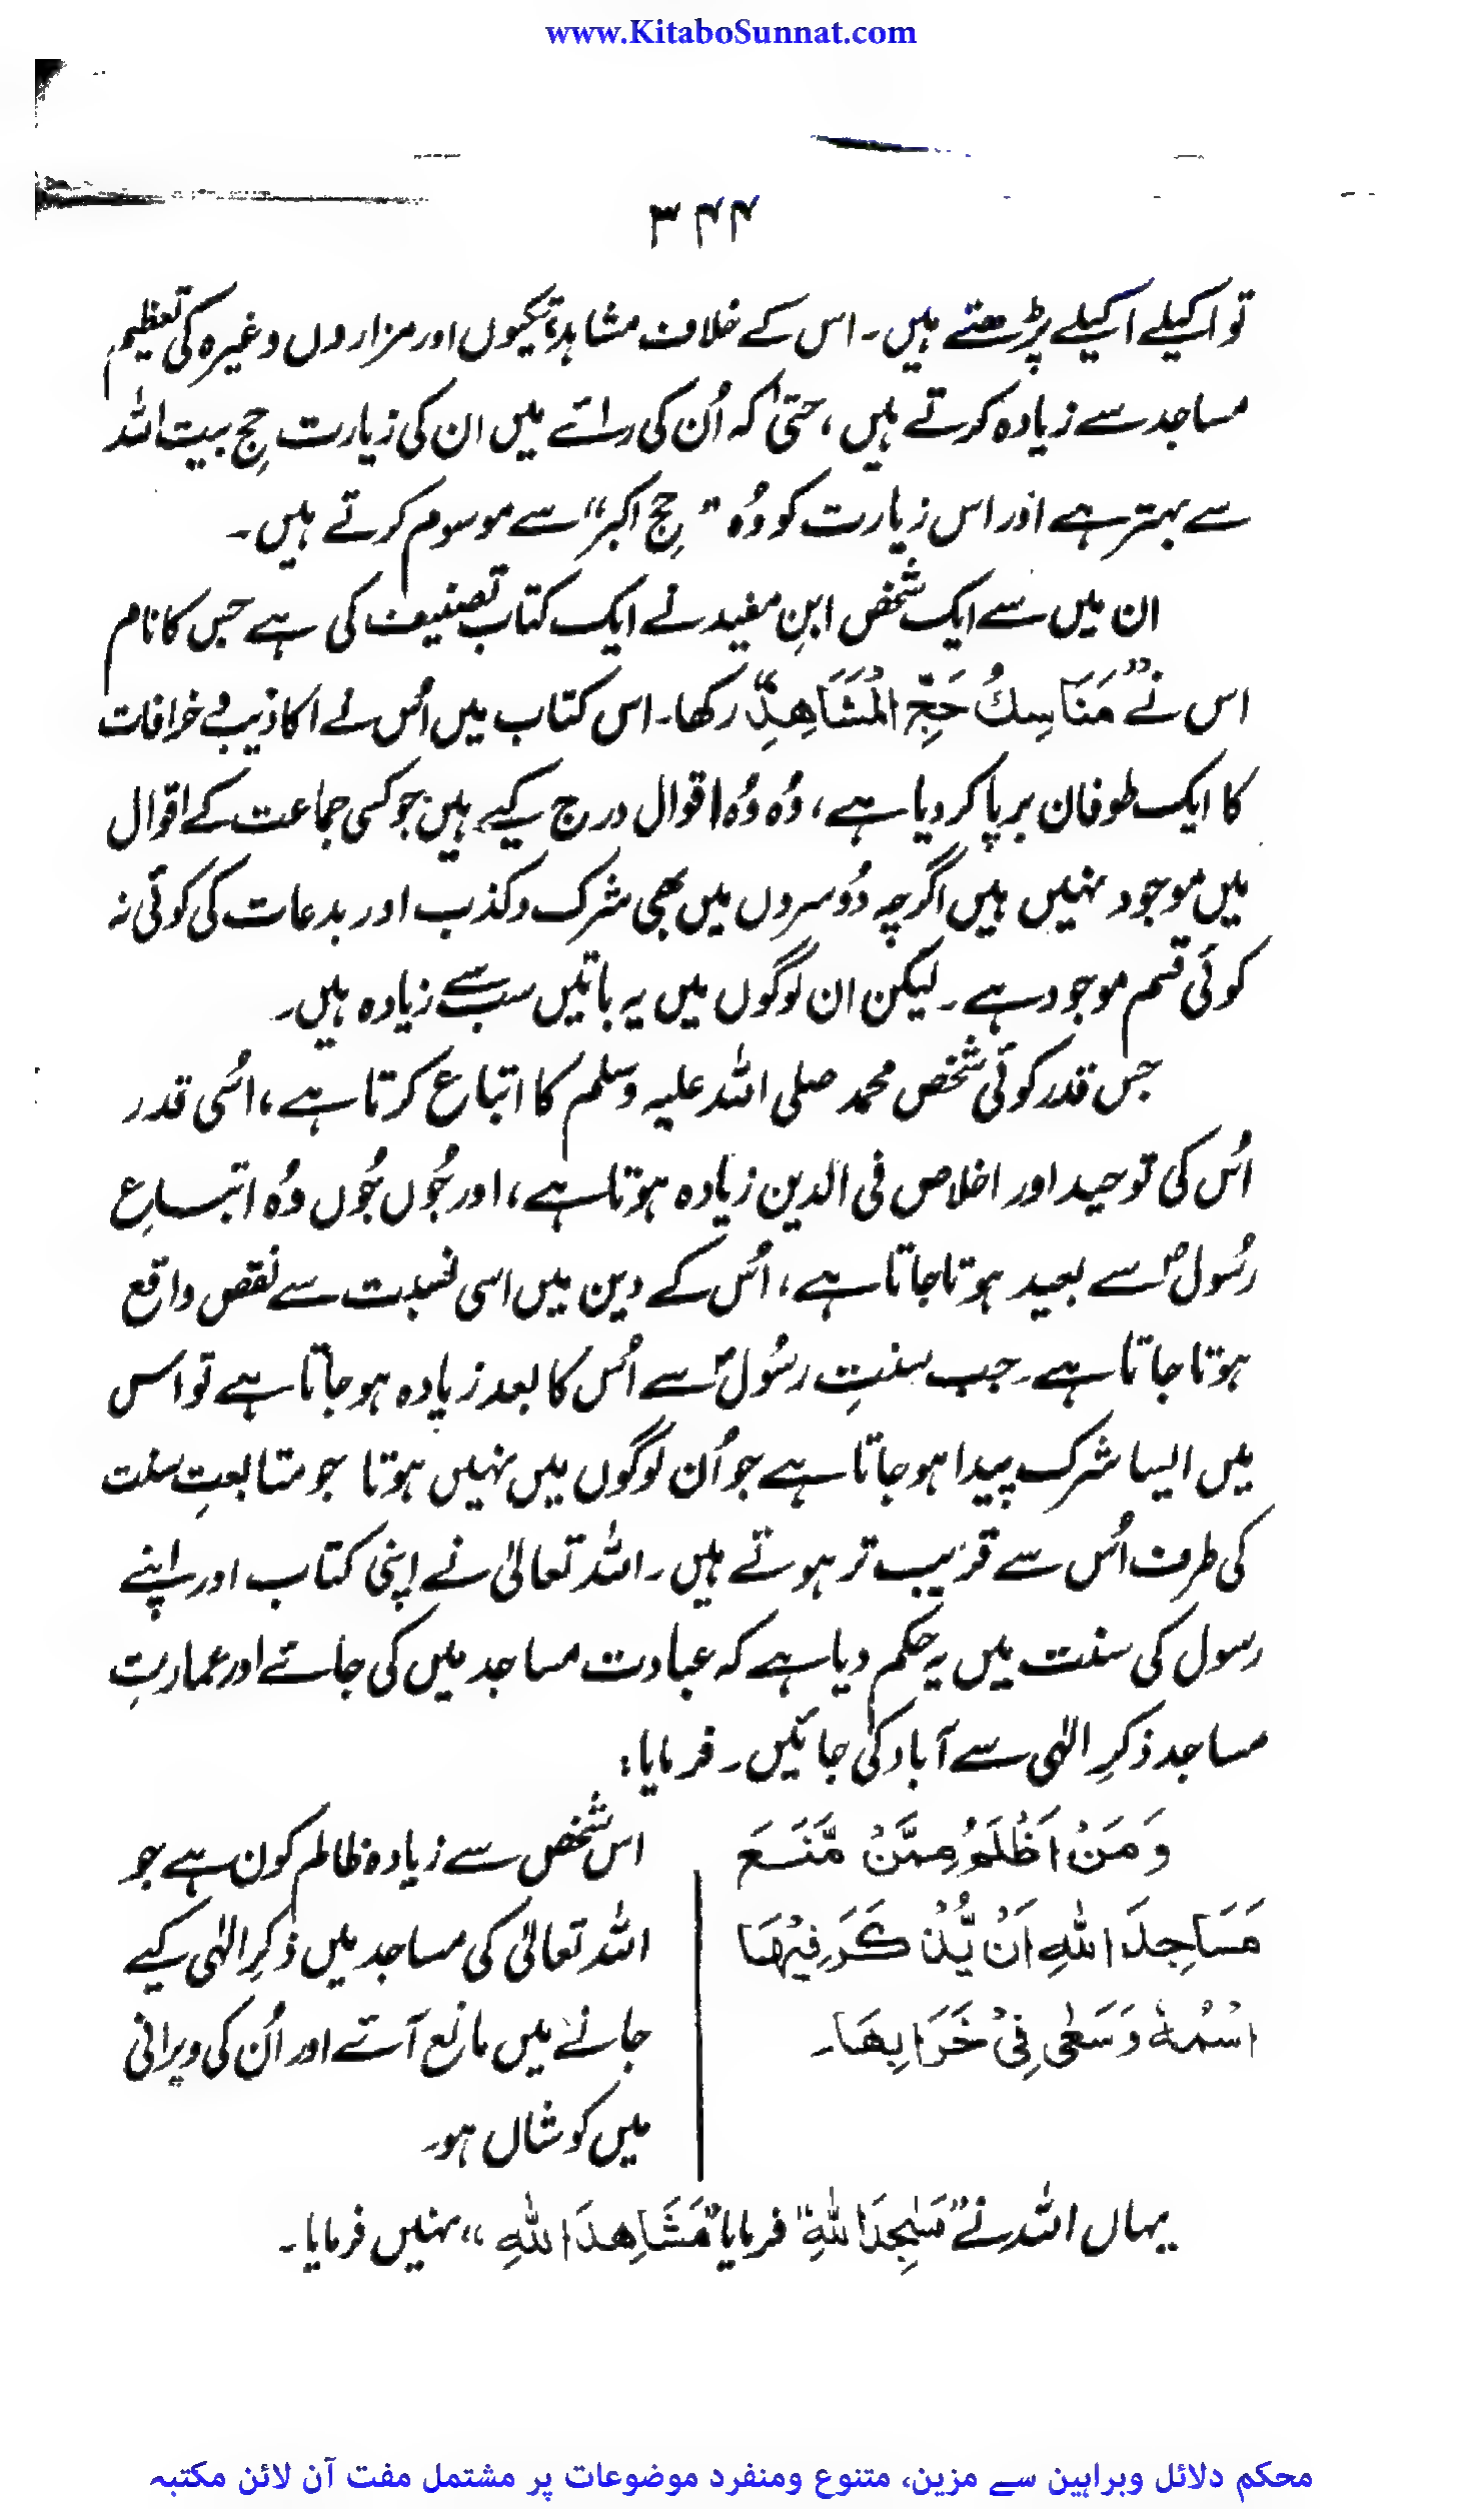 www.KitaboSunnat.com
۳۴۴
تو اکیلے اکیلے پڑھتے ہیں۔ اس کے خلاف مشاہد، تکیوں اور مزاروں وغیرہ کی تعظیم
مساجد سے زیادہ کرتے ہیں، حتیٰ کہ اُن کی رائے میں ان کی زیارت حجِ بیت اللہ
سے بہتر ہے اور اس زیارت کو وُہ "حجِ اکبر" سے موسوم کرتے ہیں۔
ان میں سے ایک شخص ابنِ مفید نے ایک کتاب تصنیف کی ہے جس کا نام
اس نے "مَنَاسِكُ حَجِّ الْمُشَاهِدِ" رکھا۔ اس کتاب میں اُس نے اکاذیب و خرافات
کا ایک طوفان برپا کر دیا ہے، وُہ وُہ اقوال درج کیے ہیں جو کسی جماعت کے اقوال
میں موجود نہیں ہیں اگرچہ دُوسروں میں بھی شرک و کذب اور بدعات کی کوئی نہ
کوئی قسم موجود ہے۔ لیکن ان لوگوں میں یہ باتیں سب سے زیادہ ہیں۔
جس قدر کوئی شخص محمد صلی اللہ علیہ وسلم کا اتباع کرتا ہے، اُسی قدر
اُس کی توحید اور اخلاص فی الدین زیادہ ہوتا ہے، اور جُوں جُوں وُہ اتباعِ
رسُولؐ سے بعید ہوتا جاتا ہے، اُس کے دین میں اسی نسبت سے نقص واقع
ہوتا جاتا ہے۔ جب سنتِ رسُولؐ سے اُس کا بعد زیادہ ہو جاتا ہے تو اس
میں ایسا شرک پیدا ہو جاتا ہے جو اُن لوگوں میں نہیں ہوتا جو متابعتِ سنت
کی طرف اُس سے قریب تر ہوتے ہیں۔ اللہ تعالیٰ نے اپنی کتاب اور اپنے
رسول کی سنت میں یہ حکم دیا ہے کہ عبادت مساجد میں کی جائے اور عمارتِ
مساجد ذکرِ الٰہی سے آباد کی جائیں۔ فرمایا:
وَمَنْ اَظْلَمُ مِمَّنْ مَّنَعَ
مَسَاجِدَ اللهِ اَنْ يُّذْكَرَ فِيْهَا
اسْمُهٗ وَسَعٰى فِيْ خَرَابِهَا۔
اس شخص سے زیادہ ظالم کون ہے جو
اللہ تعالیٰ کی مساجد میں ذکرِ الٰہی کیے
جانے میں مانع آئے اور اُن کی ویرانی
میں کوشاں ہو۔
یہاں اللہ نے "مَسٰجِدَ اللهِ" فرمایا "مَشَاهِدَ اللهِ" نہیں فرمایا۔
محکم دلائل وبراہین سے مزین، متنوع ومنفرد موضوعات پر مشتمل مفت آن لائن مکتبہ